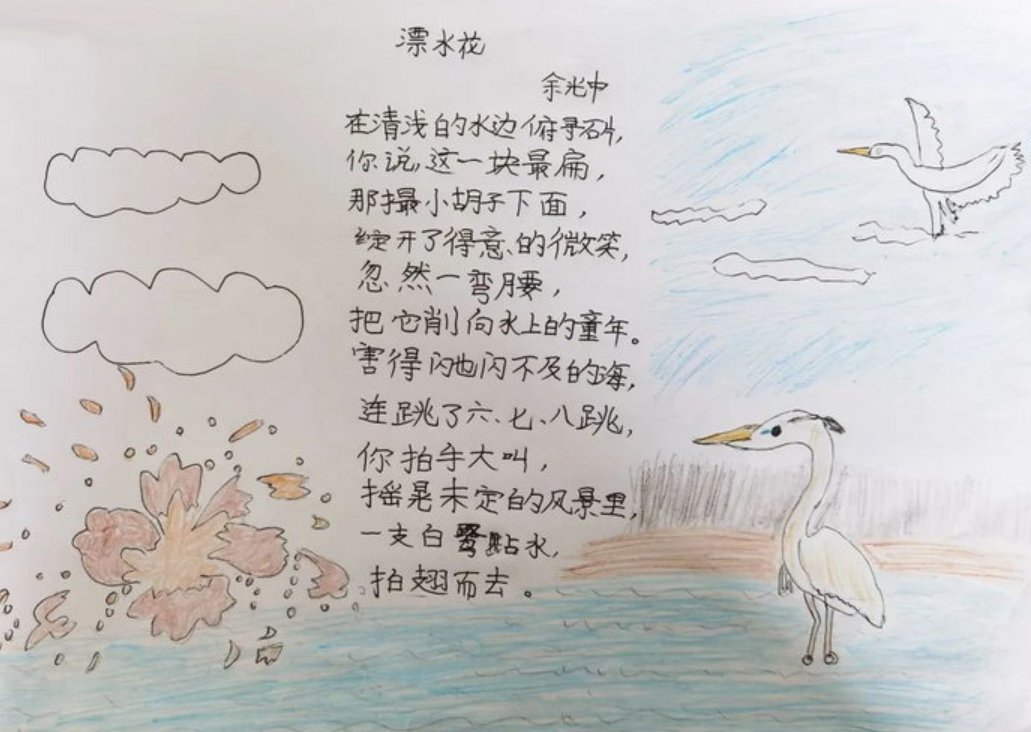 漂水花
余光中
在清浅的水边俯寻石片,
你说,这一块最扁,
那撮小胡子下面,
绽开了得意、的微笑,
忽然一弯腰,
把它削向水上的童年。
害得闪也闪不及的海,
连跳了六、七、八跳,
你拍手大叫,
摇晃未定的风景里,
一支白鹭點水,
拍翅而去。